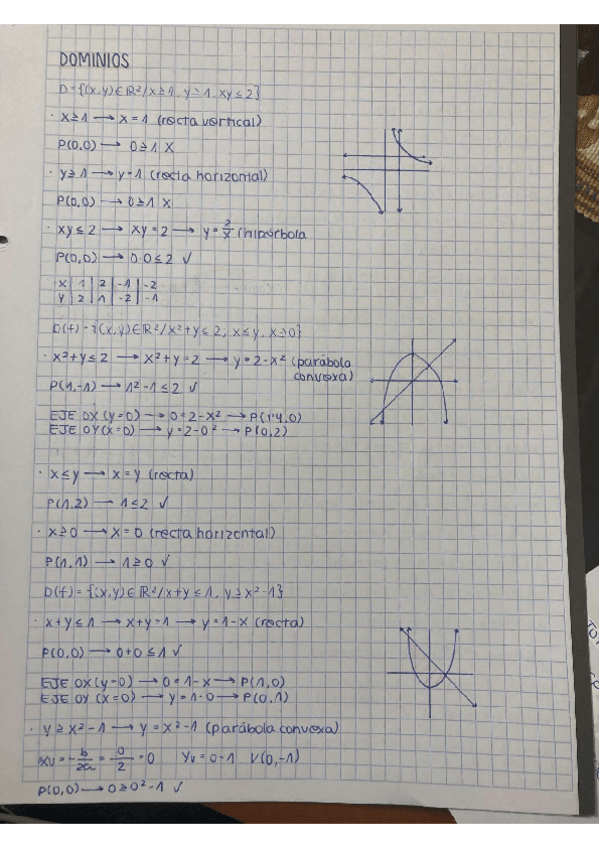 DOMINIOS
D={(x,y)∈ℝ²/x≥1, y≥1, xy≤2}
· x≥1 → x=1 (recta vertical)
P(0,0) → 0≥1 X
· y≥1 → y=1 (recta horizontal)
P(0,0) → 0≥1 X
· xy≤2 → xy=2 → y=2/x (hipérbola
P(0,0) → 0·0≤2 ✓
x | 1 | 2 | -1 | -2
y | 2 | 1 | -2 | -1
D(f)={(x,y)∈ℝ²/x²+y≤2; x≤y, x≥0}
· x²+y≤2 → x²+y=2 → y=2-x² (parábola
convexa)
P(1,-1) → 1²-1≤2 ✓
EJE OX (y=0) → 0=2-x² → P(1'4,0)
EJE OY (x=0) → y=2-0² → P(0,2)
· x≤y → x=y (recta)
P(1,2) → 1≤2 ✓
· x≥0 → x=0 (recta horizontal)
P(1,1) → 1≥0 ✓
D(f)={(x,y)∈ℝ²/x+y≤1, y≥x²-1}
· x+y≤1 → x+y=1 → y=1-x (recta)
P(0,0) → 0+0≤1 ✓
EJE OX (y=0) → 0=1-x → P(1,0)
EJE OY (x=0) → y=1-0 → P(0,1)
· y≥x²-1 → y=x²-1 (parábola convexa)
xv=-b/2a=0/2=0 yv=0-1 V(0,-1)
P(0,0) → 0≥0²-1 ✓